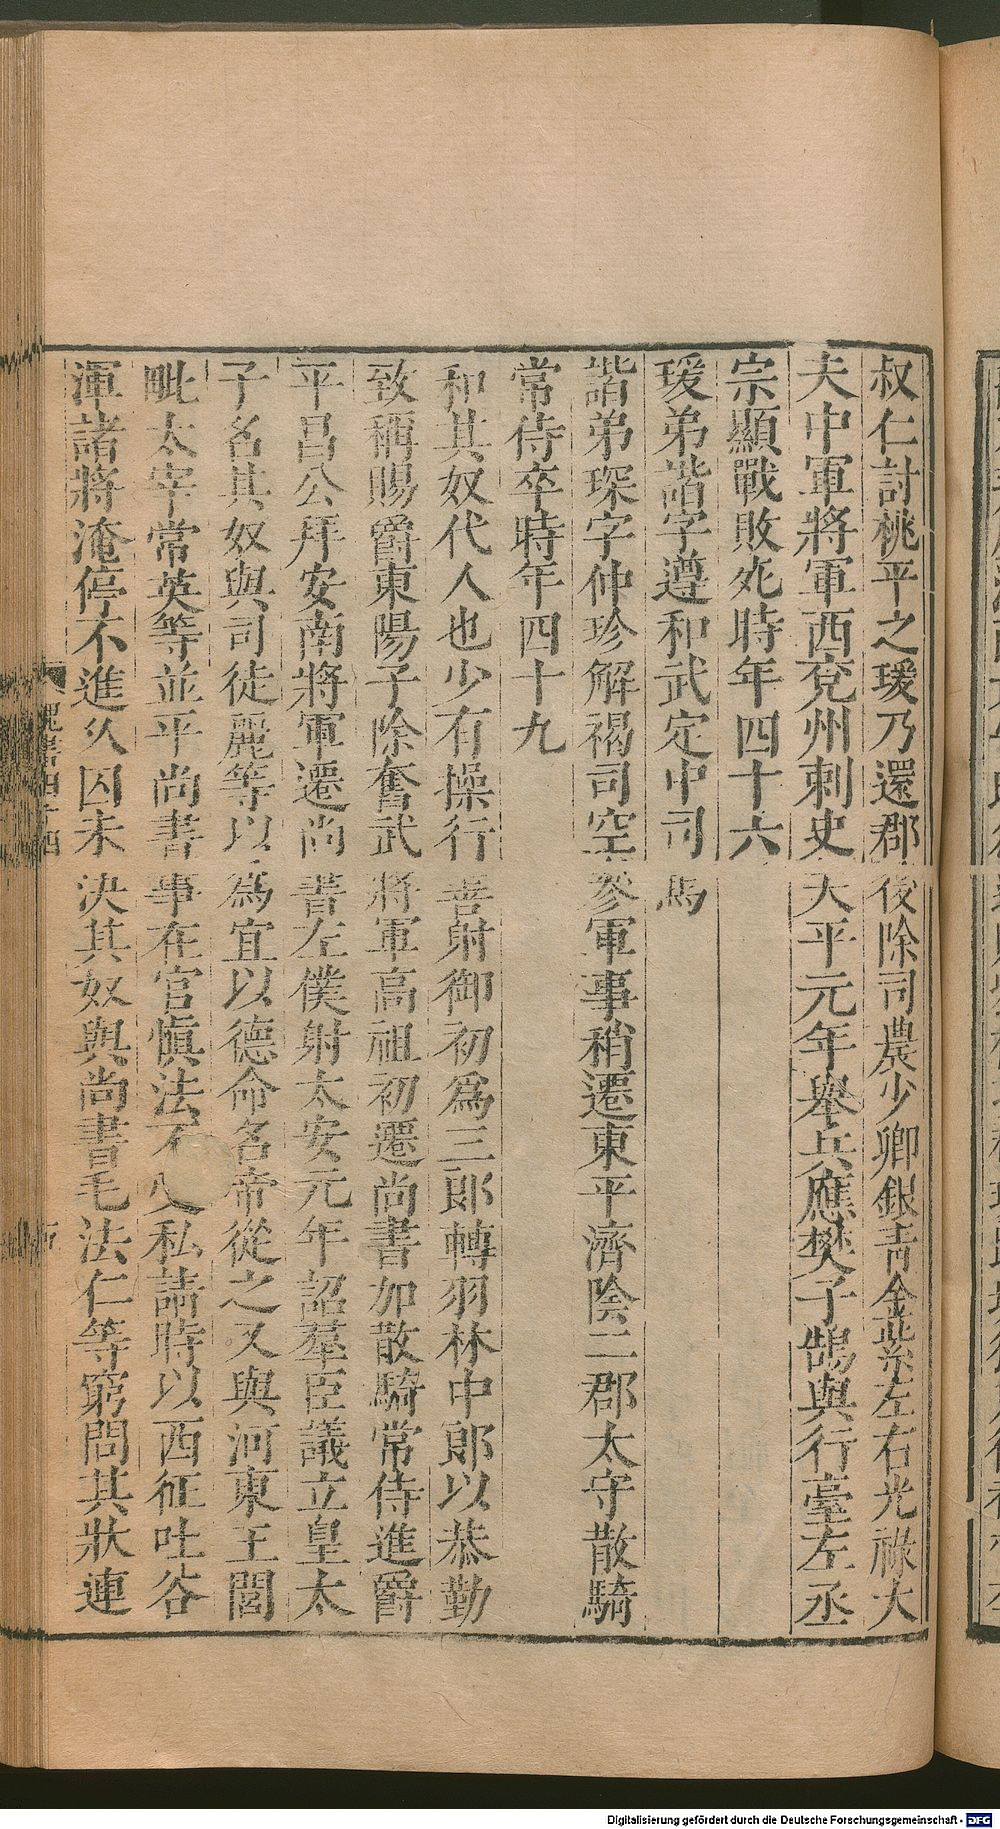 叔仁討桃平之瑗乃還郡後除司農少卿銀青金紫左右光祿大
夫中軍將軍西兗州刺史天平元年舉兵應樊子鵠與行臺左丞
宗顯戰敗死時年四十六
瑗弟諧字遵和武定中司馬
諧弟琛字仲珍解褐司空參軍事稍遷東平濟陰二郡太守散騎
常侍卒時年四十九
和其奴代人也少有操行善射御初爲三郎轉羽林中郎以恭勤
致稱賜爵東陽子除奮武將軍高祖初遷尚書加散騎常侍進爵
平昌公拜安南將軍遷尚書左僕射太安元年詔羣臣議立皇太
子名其奴與司徒麗等以爲宜以德命名帝從之又與河東王閭
毗太宰常英等並平尚書事在官慎法不受私請時以西征吐谷
渾諸將淹停不進久囚未決其奴與尚書毛法仁等窮問其狀連
魏書四十四
Digitalisierung gefördert durch die Deutsche Forschungsgemeinschaft - DFG